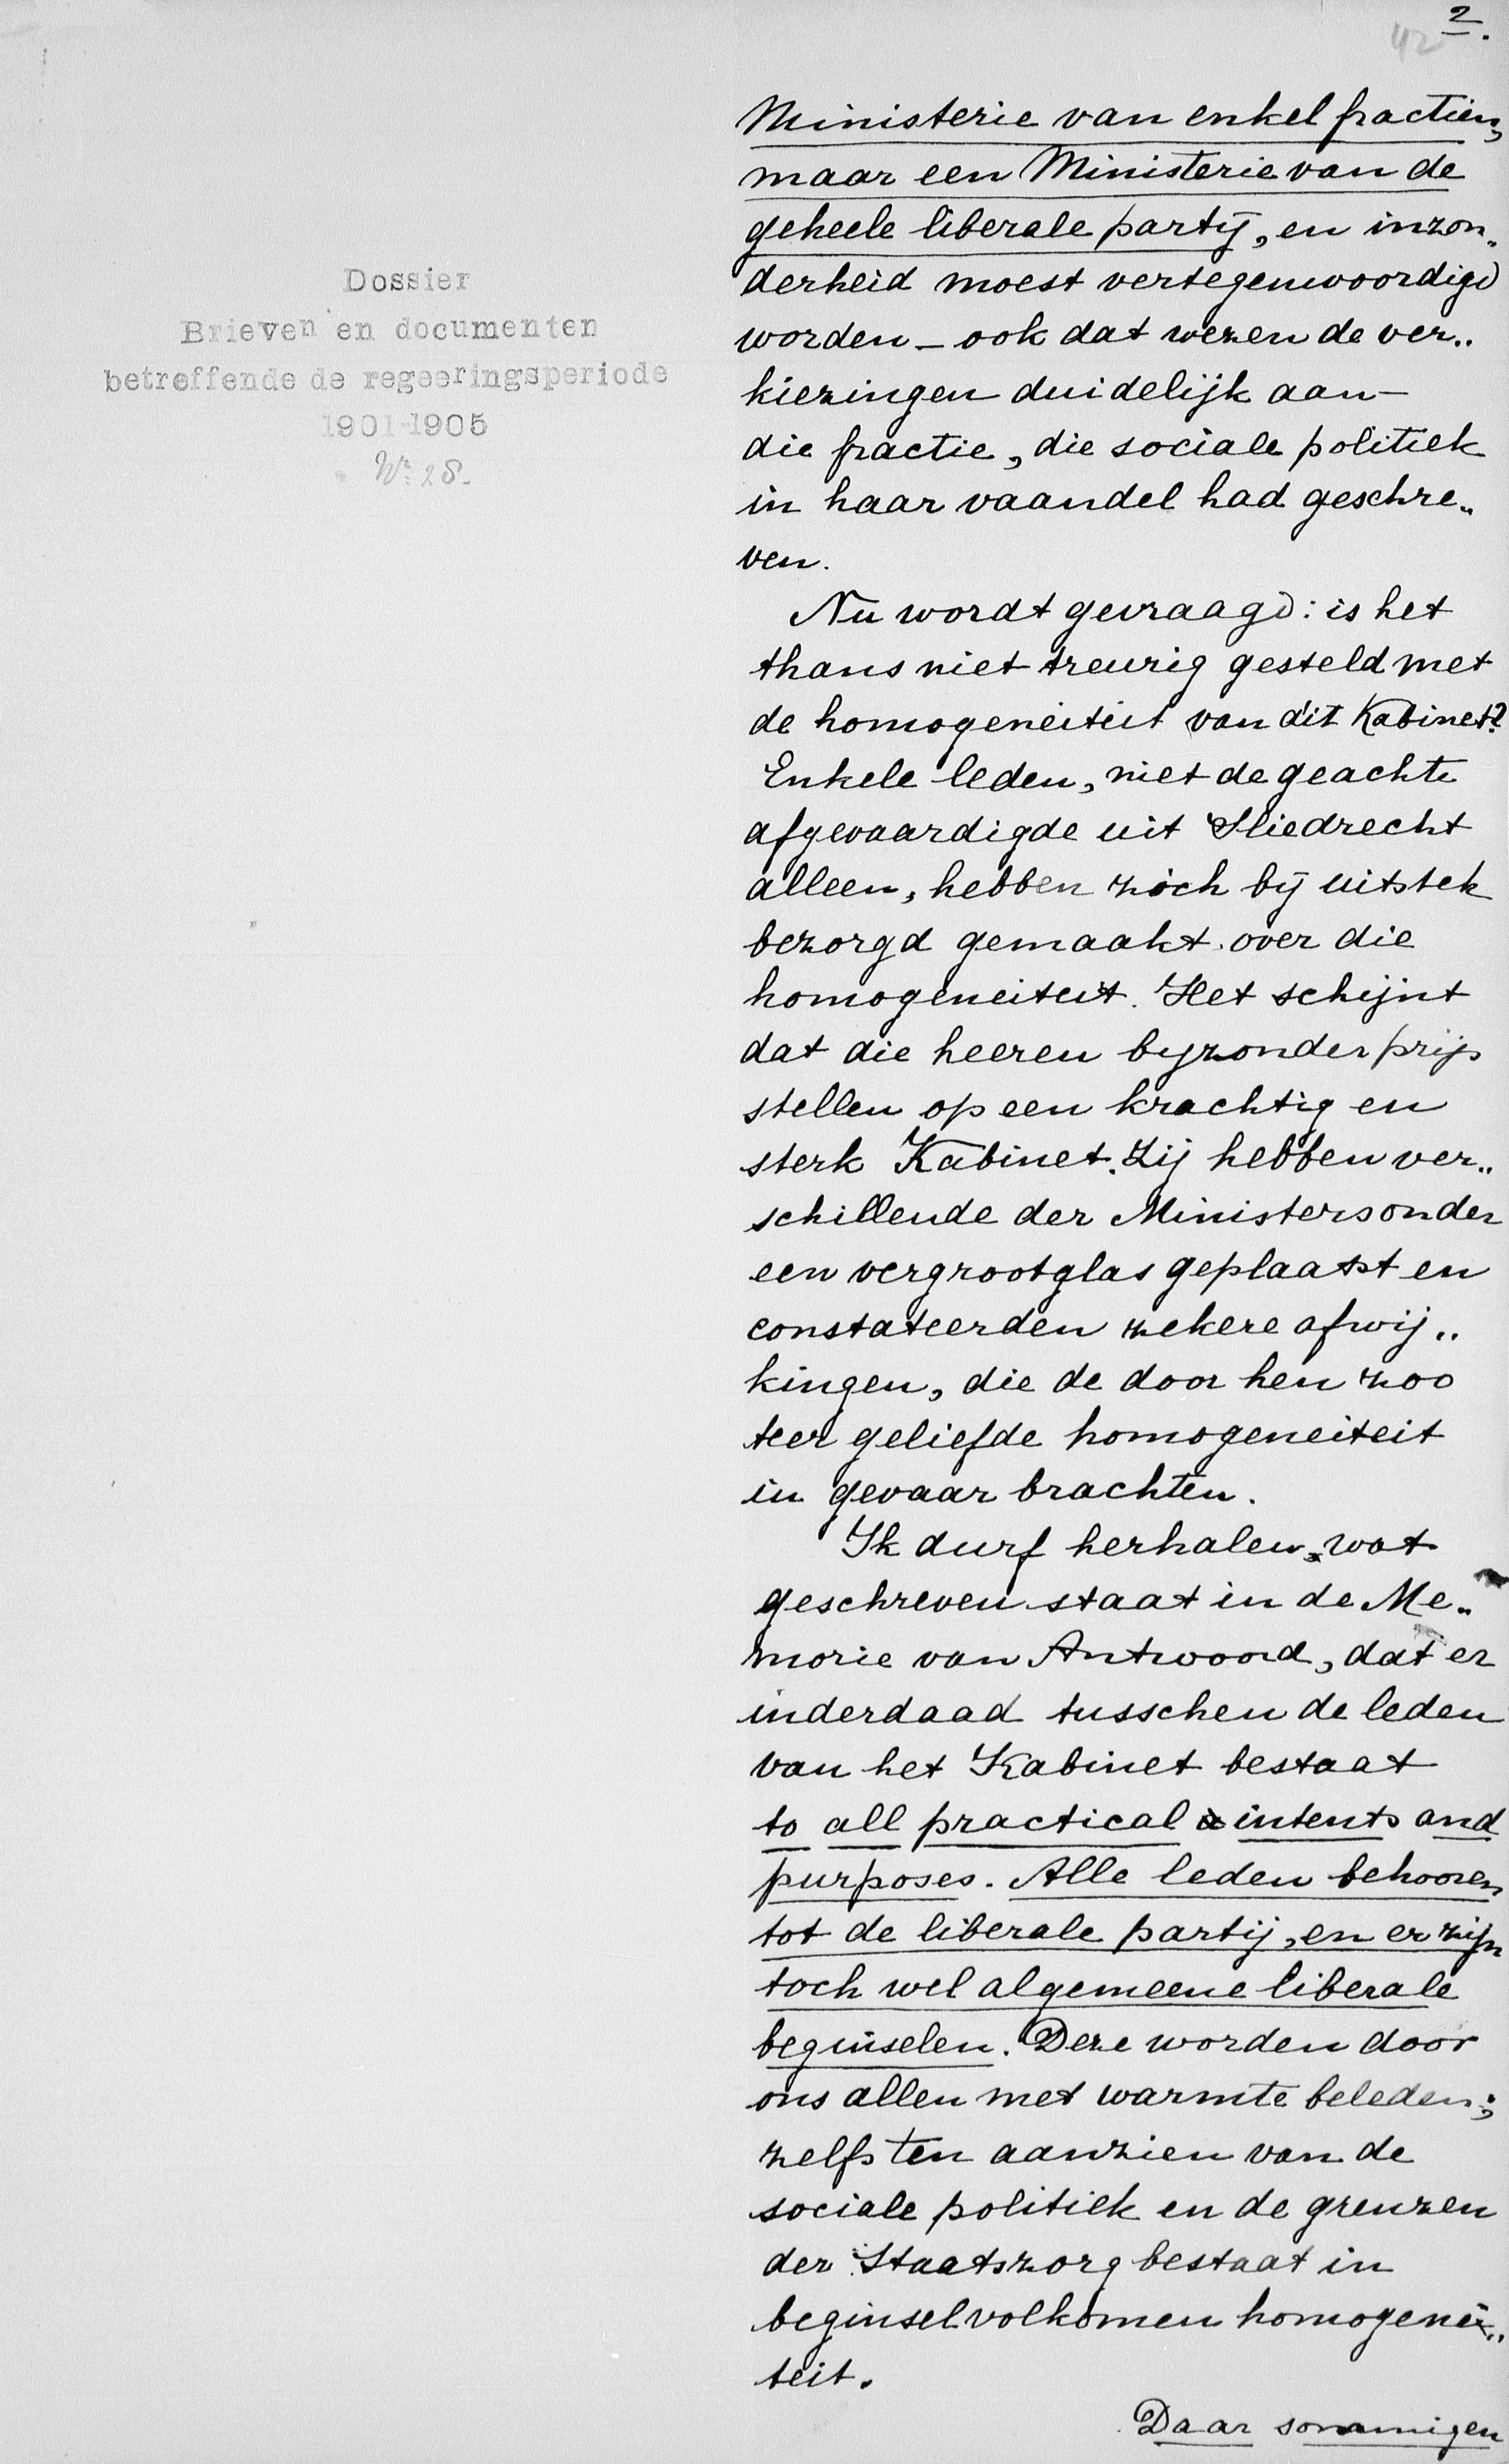 2.
42
Dossier
Brieven en documenten
betreffende de regeeringsperiode
1901-1905
Nr. 28.
Ministerie van enkel fractiën,
maar een Ministerie van de
geheele liberale partij, en inzon„
derheid moest vertegenwoordigd
worden – ook dat wezen de ver„
kiezingen duidelijk aan –
die fractie, die sociale politiek
in haar vaandel had geschre„
ven.
Nu wordt gevraagd: is het
thans niet treurig gesteld met
de homogeneiteit van dit Kabinet?
Enkele leden, niet de geachte
afgevaardigde uit Sliedrecht
alleen, hebben zich bij uitstek
bezorgd gemaakt over die
homogeneiteit. Het schijnt
dat die heeren byzonder prijs
stellen op een krachtig en
sterk Kabinet. Zij hebben ver„
schillende der Ministers onder
een vergrootglas geplaatst en
constateerden zekere afwij„
kingen, die de door hen zoo
teer geliefde homogeneiteit
in gevaar brachten.
Ik durf herhalen, wat
geschreven staat in de Me„
morie van Antwoord, dat er
inderdaad tusschen de leden
van het Kabinet bestaat
to all practical intents and
purposes. Alle leden behooren
tot de liberale partij, en er zijn
toch wel algemeene liberale
beginselen. Deze worden door
ons allen met warmte beleden;
zelfs ten aanzien van de
sociale politiek en de grenzen
der Staatszorg bestaat in
beginsel volkomen homogenei„
teit.
Daar sommigen